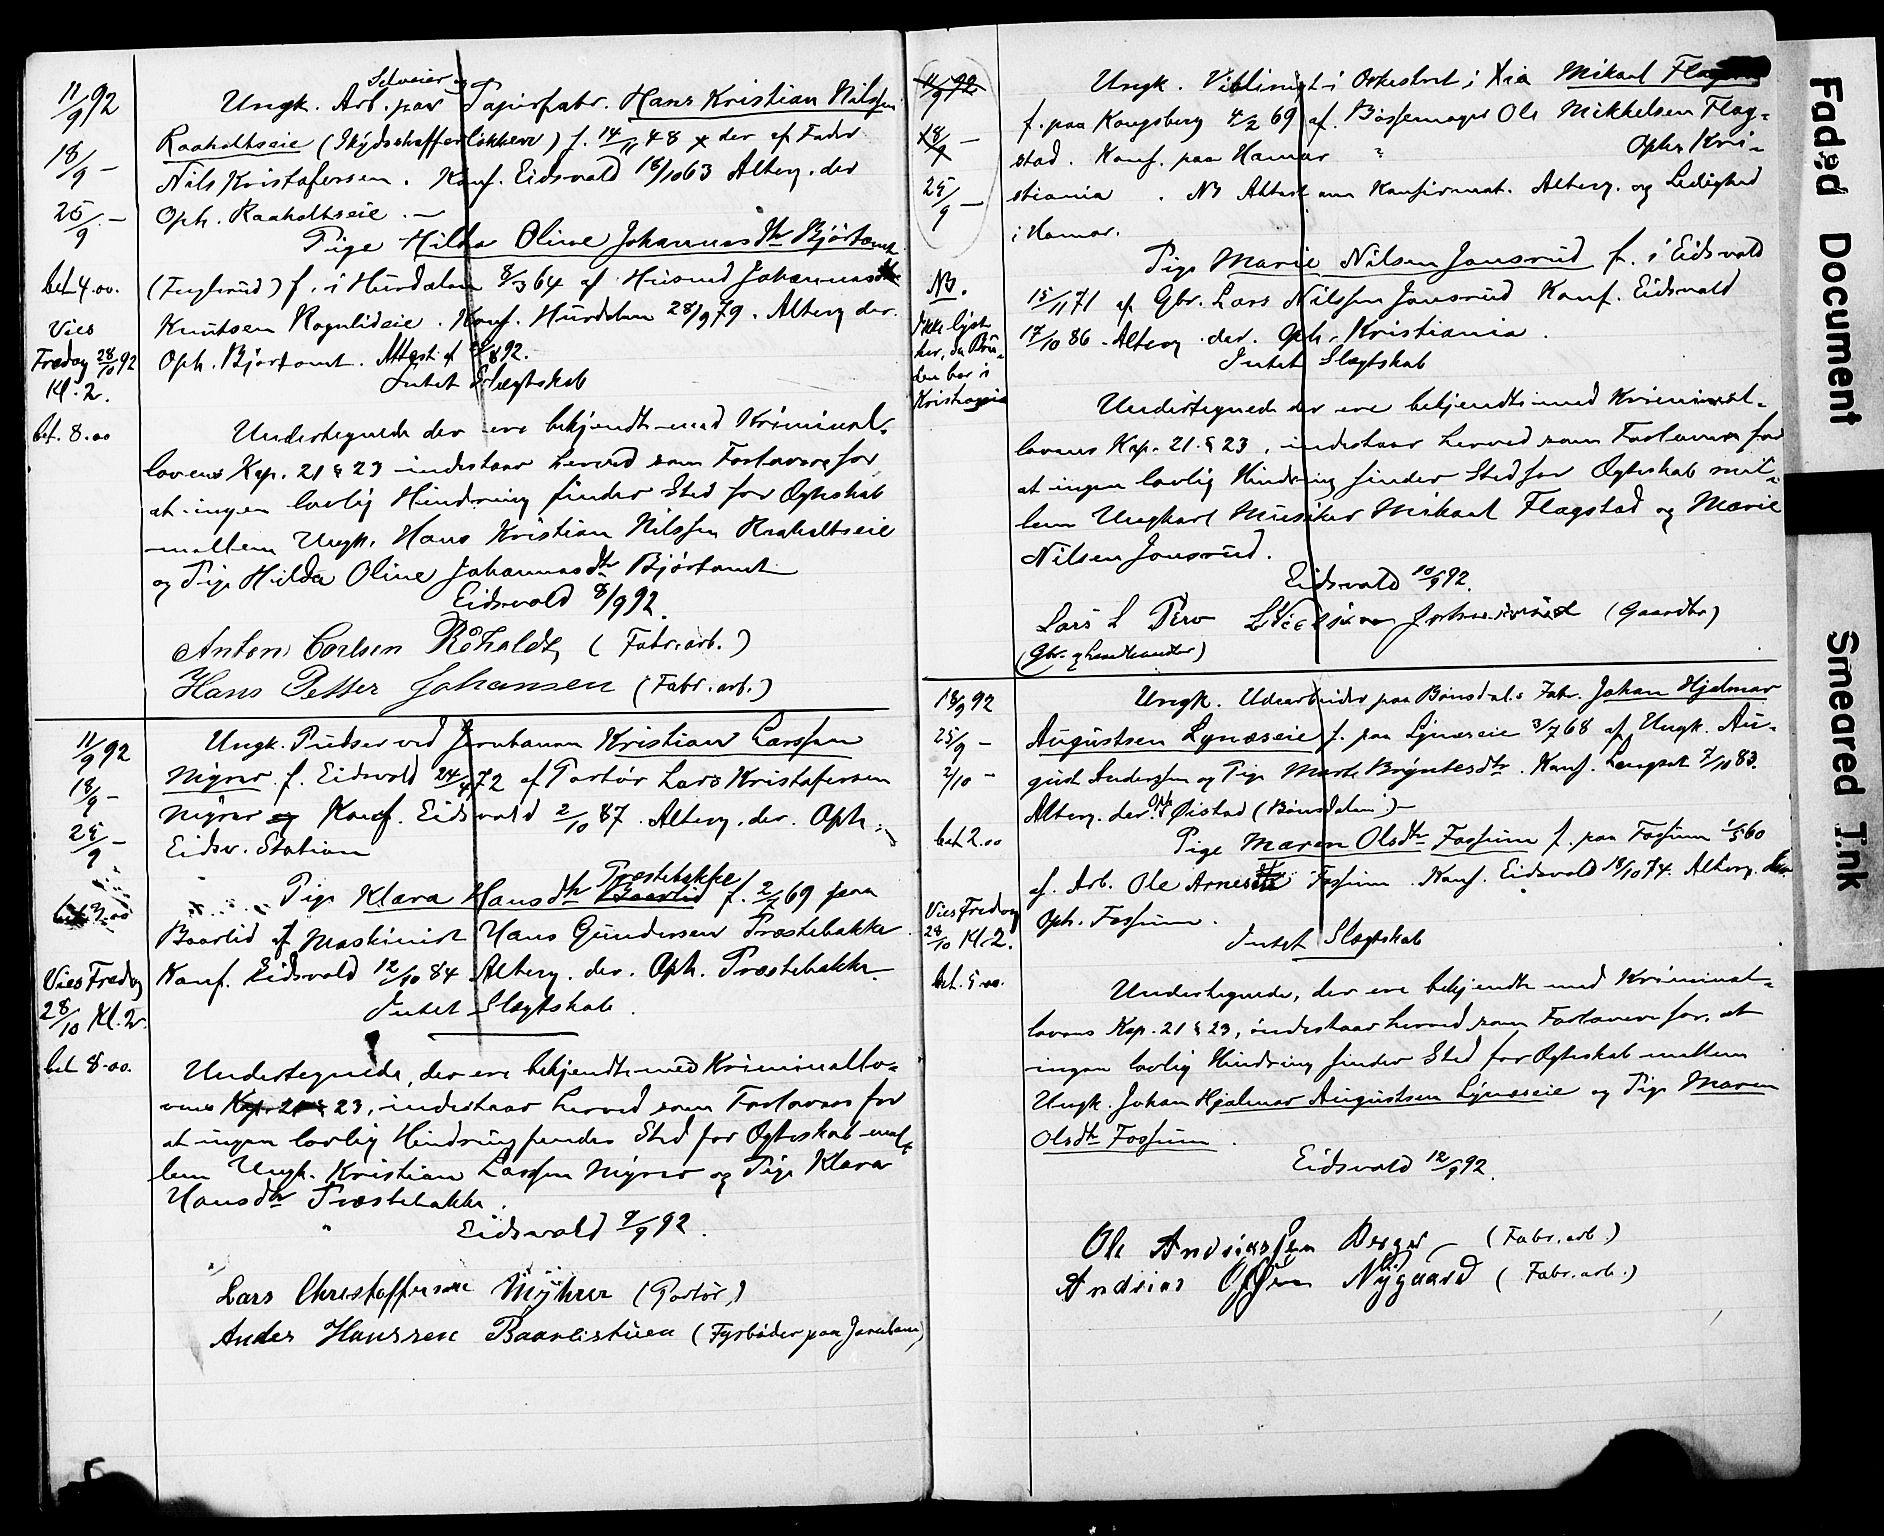 11/9 92
18/9 –
25/9 –
bet 4.00.
Vies
Fredag 28/10 92
Kl. 2.
bet. 8.00
Selveier og
Ungk. Arb. paa Papirfabr. Hans Kristian Nilssen
Raaholtseie (Skydschafferløkken) f. 14/11 48 der af Fader
Nils Kristofersen. Konf. Eidsvold 18/10 63 Altberg. der
Oph. Raaholtseie. –
Pige Hilda Oline Johannesdtr Bjørtomt
f. i Hurdalen 8/3 64 af Husmd Johannes
Knutsen Rognlideie. Konf. Hurdalen 28/9 79. Altberg der.
Oph. Bjørtomt. Attest af 92.
Intet Slægtskab
Undertegnede der ere bekjendte med Kriminal-
lovens Kap. 21 § 23 indestaar herved som Forlovere for
at ingen lovlig Hindring finder Sted for Ægteskab
mellem Ungk. Hans Kristian Nilssen Raaholtseie
og Pige Hilda Oline Johannesdtr Bjørtomt
Eidsvold 8/9 92.
Anton Carlsen Råholdt, (Fabr. arb.)
Hans Petter Johansen (Fabr. arb.)
11/9 92
18/9 –
25/9 –
bet 3.00
Vies Fredag
28/10 Kl. 2.
bet 8.00.
Ungk. Pudser ved Jernbanen Kristian Larssen
Myrer f. Eidsvold 24/4 72 af Portør Lars Kristofersen
Myrer og Konf. Eidsvold 2/10 87. Altberg. der. Oph.
Eidsv. Station
Præstebakke
Pige Klara Hansdtr Baarlid f. 69 paa
Baarlid af Maskinist Hans Gundersen Præstebakke
Konf. Eidsvold 12/10 84 Altberg. der. Oph. Præstebakke.
Intet Slægtskab.
Undertegnede, der ere bekjendte med Kriminallo-
vens Kap. 21 § 23, indestaar herved som Forlovere for
at ingen lovlig Hindring finder Sted for Ægteskab mel-
lem Ungk. Kristian Larssen Myrer og Pige Klara
Hansdtr Præstebakke.
Eidsvold 9/9 92.
Lars Christoffersen Myhrer (Portør)
Anders Hanssen Baarlistuen (Fyrbøder paa Jernbanen)
11/9 92
18/9 –
25/9 –
NB.
Ikke lyst
her, da Bru-
den bor i
Kristiania
Ungk. Violinist i Orkestret i Xia Mikael
f. paa Kongsberg 4/2 69 af Bøssemager Ole Mikkelsen Flag-
stad. Konf. paa Hamar " Oph. Kri-
stiania. NB Attest om Konfirmat. Altberg. og Ledighed
i Hamar.
Pige Marie Nilsen Jonsrud f. i Eidsvold
15/11 71 af Gbr. Lars Nilssen Jonsrud Konf. Eidsvold
17/10 86. Altberg. der. Oph. Kristiania.
Intet Slægtskab
Undertegnede der ere bekjendte med Kriminal-
lovens Kap. 21 § 23, indestaar herved som Forlovere for
at ingen lovlig Hindring finder Sted for Ægteskab mel-
lem Ungkarl Musiker Mikael Flagstad og Marie
Nilsen Jonsrud.
Eidsvold 10/9 92.
Lars L (Gaardbr)
(Gbr. og Landhandler)
18/9 92
25/9 –
2/10 –
bet 2.00
Vies Fredag
28/10 Kl. 2.
bet. 5.00.
Ungk. Udearbeider paa Bønsdal. Fabr. Johan Hjalmar
Augustsen Lynæseie f. paa Lynæseie 3/7 68 af Ungk. Au-
gust Anderssen og Pige Marte Bryntesdtr. Konf. Langset 7/10 83.
Altberg. der. Oph. Øistad (Bønsdalen) –
Pige Maren Olsdtr Fossum f. paa Fossum 1/5 60
af Arb. Ole Arnesen Fossum. Konf. Eidsvold 18/10 74. Altberg. der
Oph. Fossum.
Intet Slægtskab
Undertegnede, der ere bekjendte med Kriminal-
lovens Kap. 21 § 23, indestaar herved som Forlovere for, at
ingen lovlig Hindring finder Sted for Ægteskab mellem
Ungk. Johan Hjalmar Augustsen Lynæseie og Pige Maren
Olsdtr Fossum.
Eidsvold 12/9 92.
Ole Andreassen Berger (Fabr. arb.)
Andreas Olsen Nygaard (Fabr. arb.)
Faded Document
Smeared Ink